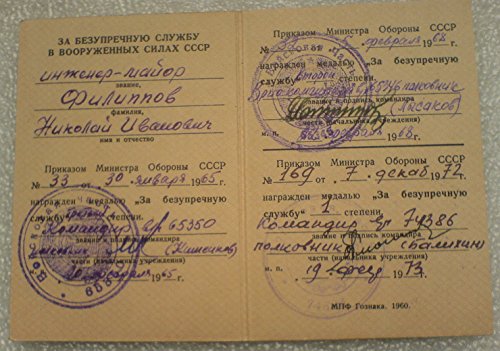 ЗА БЕЗУПРЕЧНУЮ СЛУЖБУ
В ВООРУЖЕННЫХ СИЛАХ СССР
инженер-майор
звание,
Филиппов
фамилия,
Николай Иванович
имя и отчество
Приказом Министра Обороны СССР
№ 33 от 30 января 1965 г.
награжден медалью „За безупречную
службу" степени.
Командир в/ч 65350
звание и подпись командира
части (начальника учреждения)
февраля 1965 г.
Приказом Министра Обороны СССР
февраля 1968 г.
награжден медалью „За безупречную
службу" второй степени.
подполковник
звание и подпись командира
(Аксаков)
части (начальника учреждения)
м. п. февраля 1968 г.
Приказом Министра Обороны СССР
№ 169 от 7 декаб 1972 г.
награжден медалью „За безупречную
службу" 1 степени.
Командир 74386
звание и подпись командира
полковник (Балихин)
части (начальника учреждения)
м. п. 19 февр 1973 г.
МПФ Гознака. 1960.